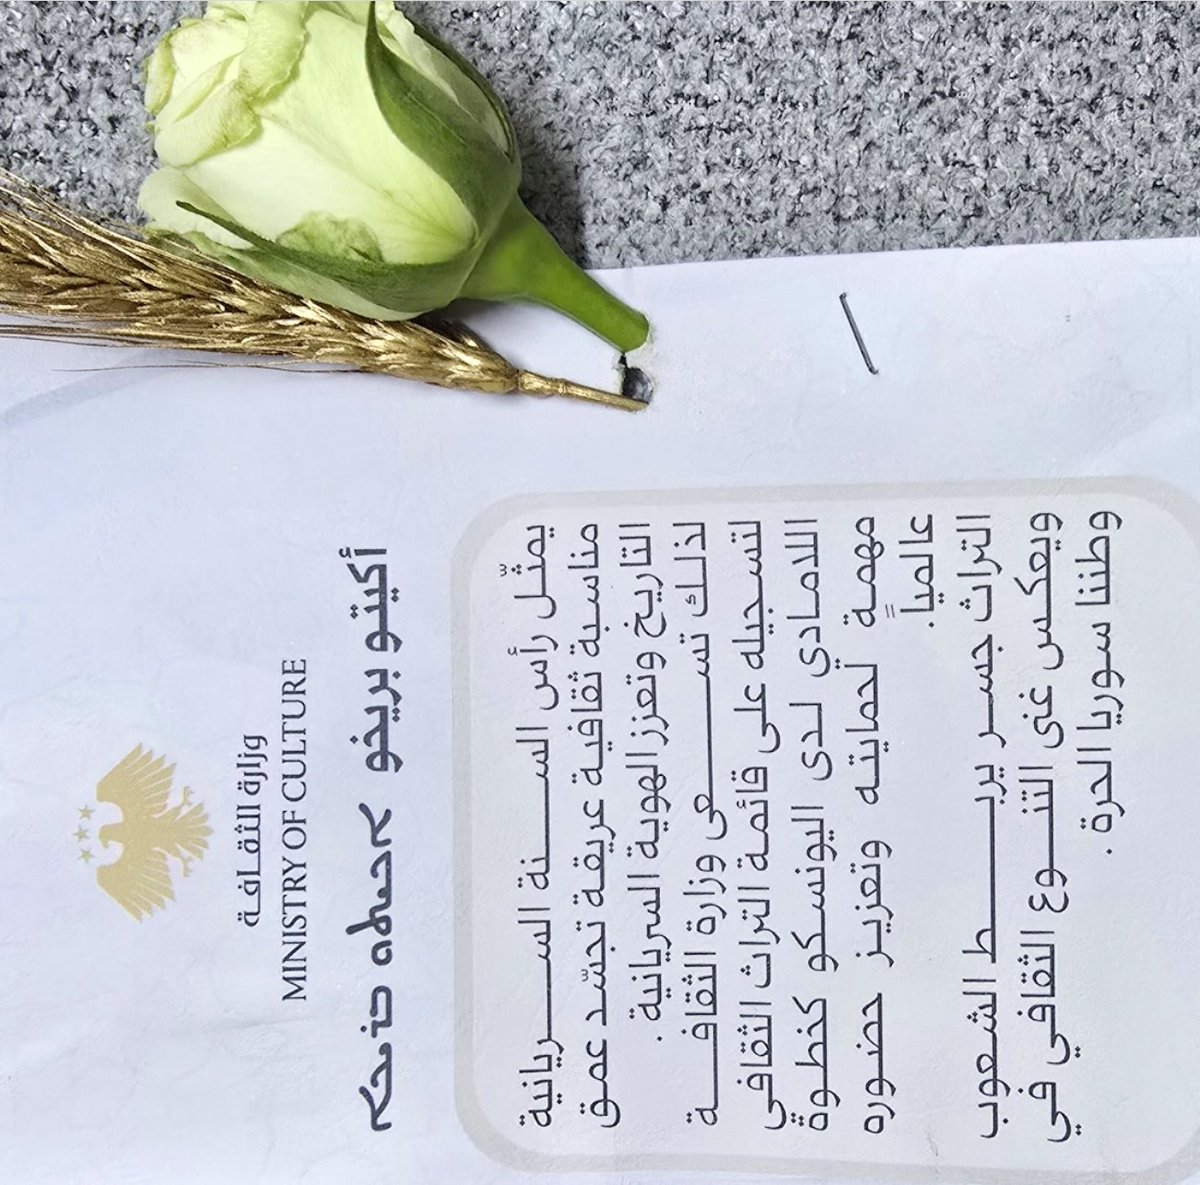 وزارة الثقافة
MINISTRY OF CULTURE
أكيتو بريخو ܐܟܝܬܘ ܒܪܝܟܐ
يمثّل رأس السنة السريانية
مناسبة ثقافية عريقة تجسّد عمق
التاريخ وتعزز الهوية السريانية .
لذلك تسعى وزارة الثقافة
لتسجيله على قائمة التراث الثقافي
اللامادي لدى اليونسكو كخطوة
مهمة لحمايته وتعزيز حضوره
عالمياً.
التراث جسر يربط الشعوب
ويعكس غنى التنوع الثقافي في
وطننا سوريا الحرة .